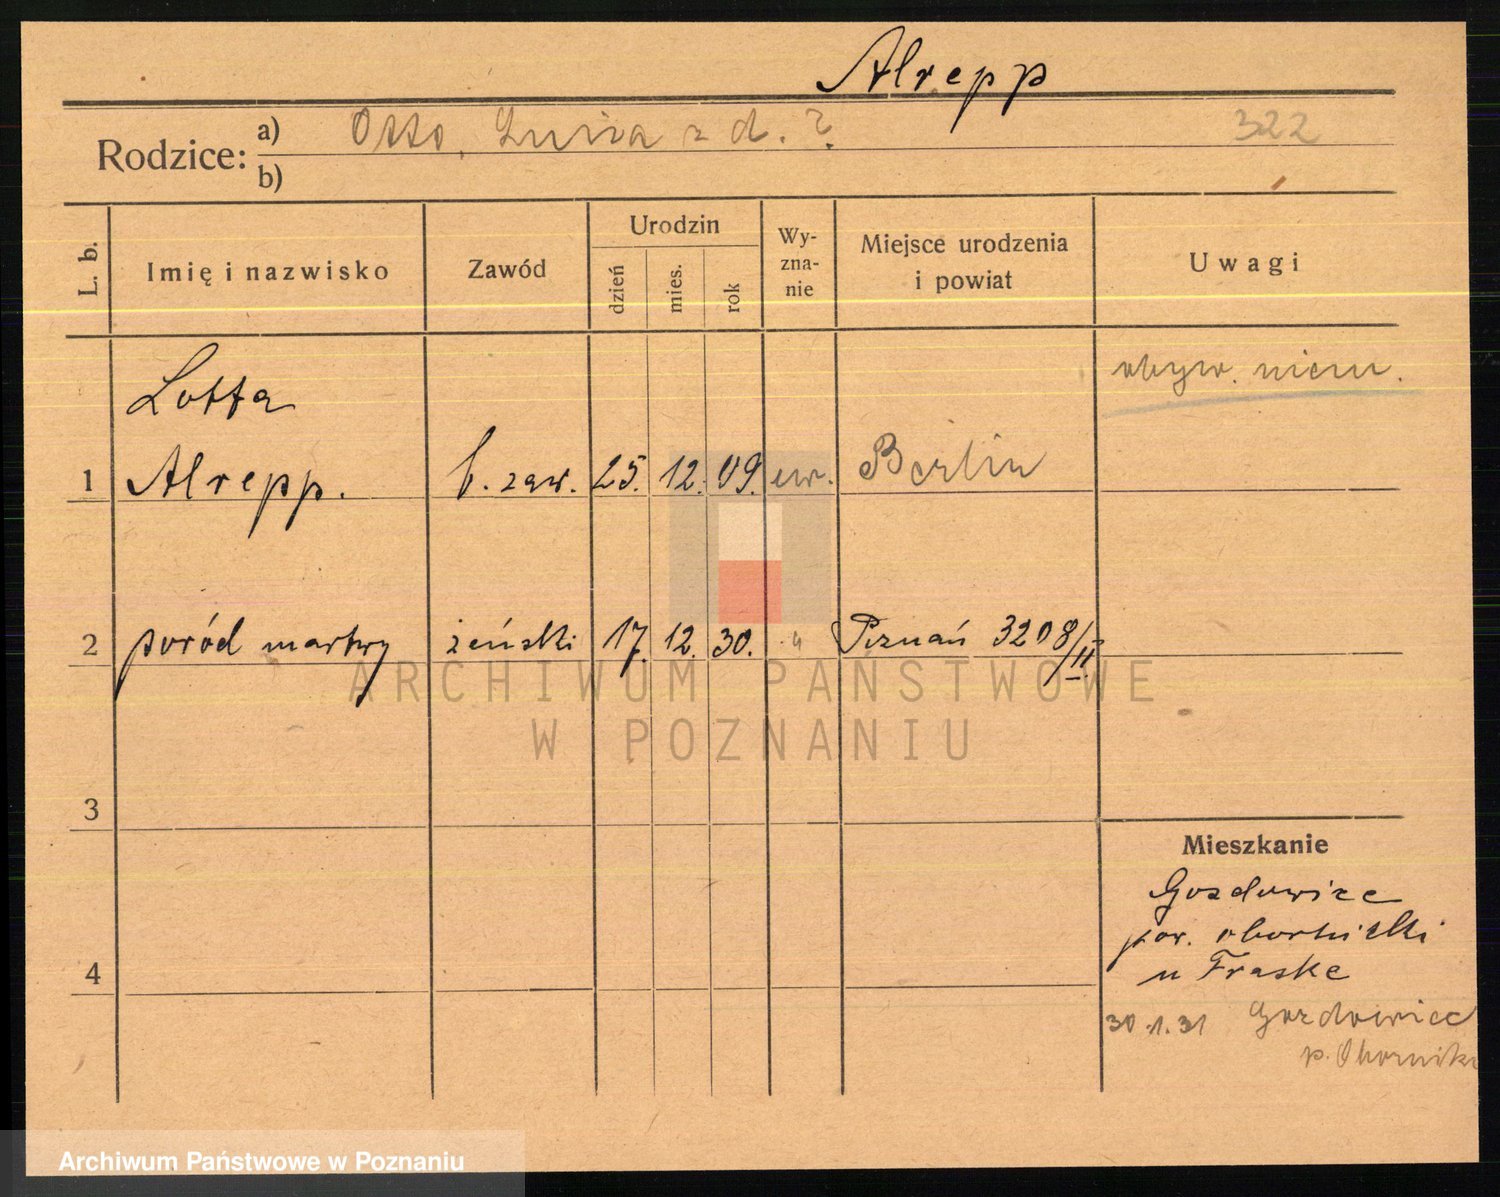 Alrepp
Rodzice: a) Otto, Luiza z d. ? 322
b)
L. b. Imię i nazwisko Zawód Urodzin dzień mies. rok Wy-zna-nie Miejsce urodzenia i powiat Uwagi
obyw. niem.
Lotta
1 Alrepp. b. zaw. 25. 12. 09. ew. Berlin
2 poród martwy żeński 17. 12. 30. Poznań 3208/II
ARCHIWUM PAŃSTWOWE
W POZNANIU
3
Mieszkanie
Gozdowice
pow. obornicki
4
u Fraske
30.1.31 Gozdowice
p. Oborniki
Archiwum Państwowe w Poznaniu